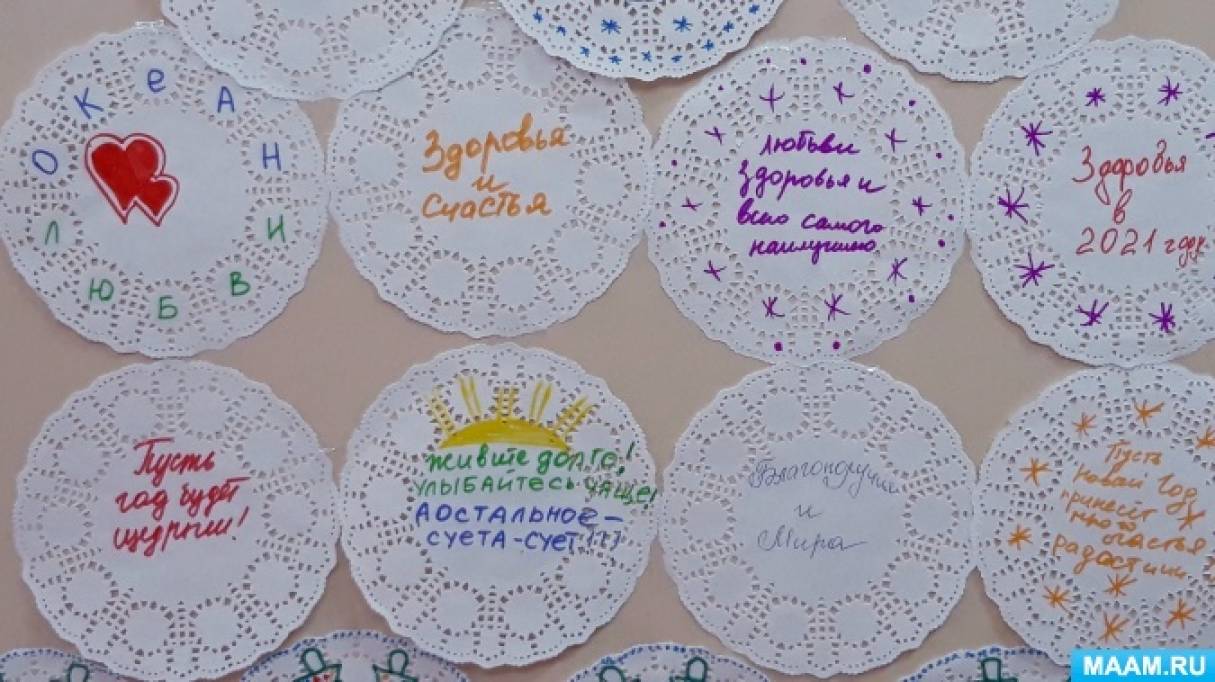 ОКеАН
ЛЮБВИ
Здоровья
и
счастья
Любви
Здоровья и
всно самого
наилучшно
Здоровья
в
2021 году
Пусть
год будет
щедрым!
живите долго!
улыбайтесь чаще!
Аостальное –
суета-сует!!!
Благополучия
и
Мира
Пусть
Новый Год
принесёт
счастья
радости
MAAM.RU